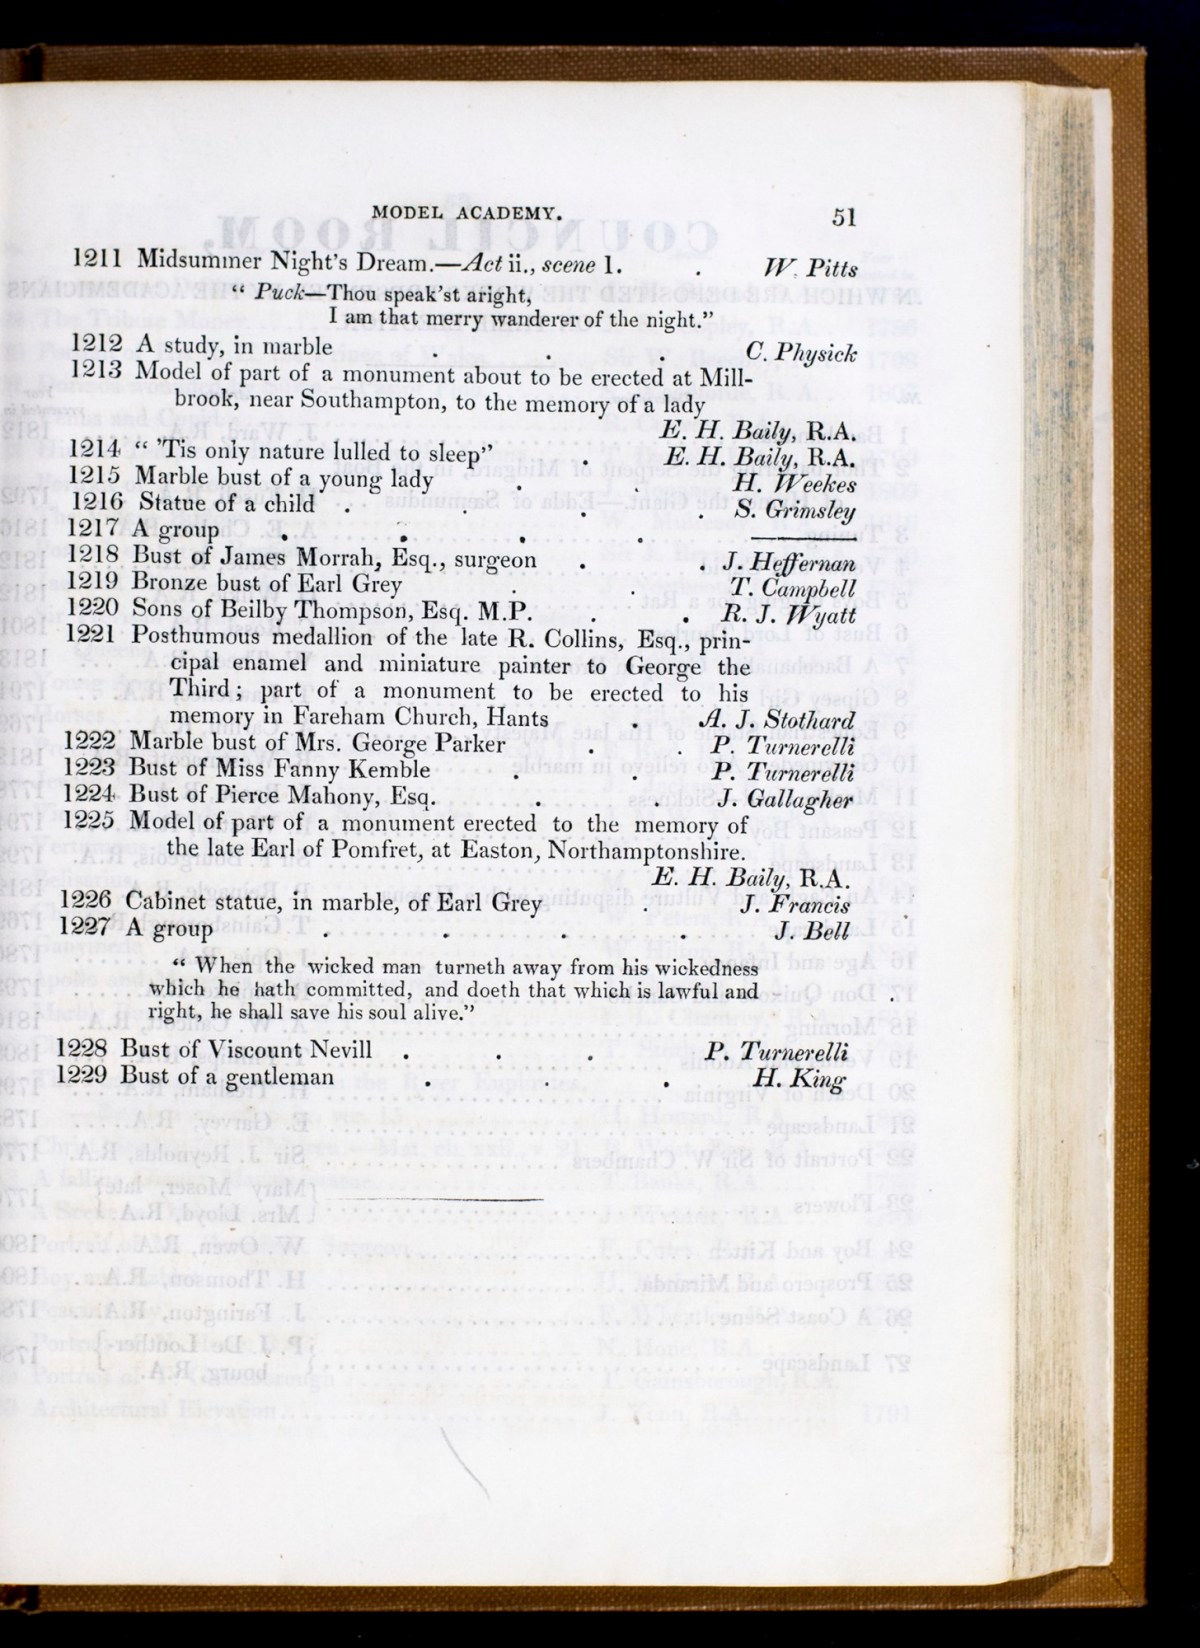 MODEL ACADEMY. 51
1211 Midsummer Night's Dream.—Act ii., scene 1. . W. Pitts
“ Puck—Thou speak'st aright,
I am that merry wanderer of the night.”
1212 A study, in marble . . . C. Physick
1213 Model of part of a monument about to be erected at Mill-
brook, near Southampton, to the memory of a lady
E. H. Baily, R.A.
1214 “ 'Tis only nature lulled to sleep” . E. H. Baily, R.A.
1215 Marble bust of a young lady . . H. Weekes
1216 Statue of a child . . . . S. Grimsley
1217 A group . . . . ———
1218 Bust of James Morrah, Esq., surgeon . . J. Heffernan
1219 Bronze bust of Earl Grey . . T. Campbell
1220 Sons of Beilby Thompson, Esq. M.P. . . R. J. Wyatt
1221 Posthumous medallion of the late R. Collins, Esq., prin-
cipal enamel and miniature painter to George the
Third; part of a monument to be erected to his
memory in Fareham Church, Hants . A. J. Stothard
1222 Marble bust of Mrs. George Parker . . P. Turnerelli
1223 Bust of Miss Fanny Kemble . . P. Turnerelli
1224 Bust of Pierce Mahony, Esq. . . J. Gallagher
1225 Model of part of a monument erected to the memory of
the late Earl of Pomfret, at Easton, Northamptonshire.
E. H. Baily, R.A.
1226 Cabinet statue, in marble, of Earl Grey . J. Francis
1227 A group . . . . J. Bell
“ When the wicked man turneth away from his wickedness
which he hath committed, and doeth that which is lawful and
right, he shall save his soul alive.”
1228 Bust of Viscount Nevill . . . P. Turnerelli
1229 Bust of a gentleman . . . H. King